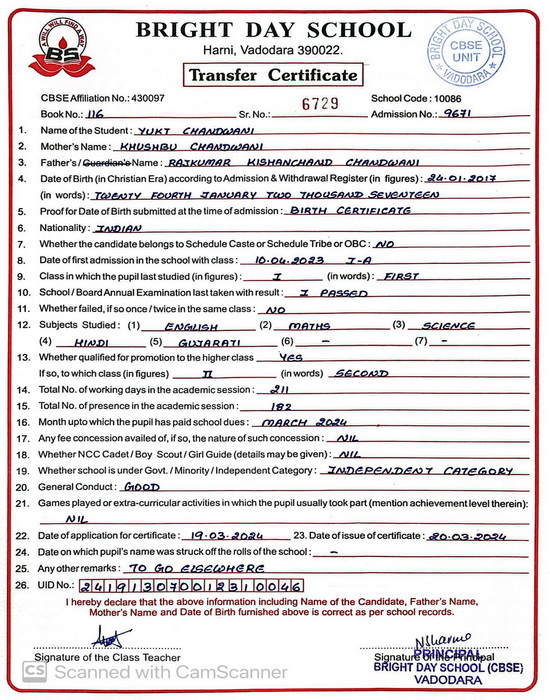 A WILL WILL FIND A WAY
BS
BRIGHT DAY SCHOOL
Harni, Vadodara 390022.
BRIGHT DAY SCHOOL
CBSE
UNIT
VADODARA
Transfer Certificate
CBSE Affiliation No.: 430097 School Code : 10086
Book No.: 116 Sr. No.: 6729 Admission No.: 9671
1. Name of the Student : YUKT CHANDWANI
2. Mother's Name : KHUSHBU CHANDWANI
3. Father's / Guardian's Name : RAJKUMAR KISHANCHAND CHANDWANI
4. Date of Birth (in Christian Era) according to Admission & Withdrawal Register (in figures) : 24.01.2017
(in words) : TWENTY FOURTH JANUARY TWO THOUSAND SEVENTEEN
5. Proof for Date of Birth submitted at the time of admission : BIRTH CERTIFICATE
6. Nationality : INDIAN
7. Whether the candidate belongs to Schedule Caste or Schedule Tribe or OBC : NO
8. Date of first admission in the school with class : 10.04.2023 I-A
9. Class in which the pupil last studied (in figures) : I (in words) : FIRST
10. School / Board Annual Examination last taken with result : I PASSED
11. Whether failed, if so once / twice in the same class : NO
12. Subjects Studied : (1) ENGLISH (2) MATHS (3) SCIENCE
(4) HINDI (5) GUJARATI (6) - (7) -
13. Whether qualified for promotion to the higher class YES
If so, to which class (in figures) II (in words) SECOND
14. Total No. of working days in the academic session : 211
15. Total No. of presence in the academic session : 182
16. Month upto which the pupil has paid school dues : MARCH 2024
17. Any fee concession availed of, if so, the nature of such concession : NIL
18. Whether NCC Cadet / Boy Scout / Girl Guide (details may be given) : NIL
19. Whether school is under Govt. / Minority / Independent Category : INDEPENDENT CATEGORY
20. General Conduct : GOOD
21. Games played or extra-curricular activities in which the pupil usually took part (mention achievement level therein):
NIL
22. Date of application for certificate : 19.03.2024 23. Date of issue of certificate : 20.03.2024
24. Date on which pupil's name was struck off the rolls of the school : -
25. Any other remarks : TO GO ELSEWHERE
26. UID No.: 241913070012310046
I hereby declare that the above information including Name of the Candidate, Father's Name,
Mother's Name and Date of Birth furnished above is correct as per school records.
NSharma
Signature of the Class Teacher Signature of the Principal
PRINCIPAL
BRIGHT DAY SCHOOL (CBSE)
VADODARA
CS Scanned with CamScanner